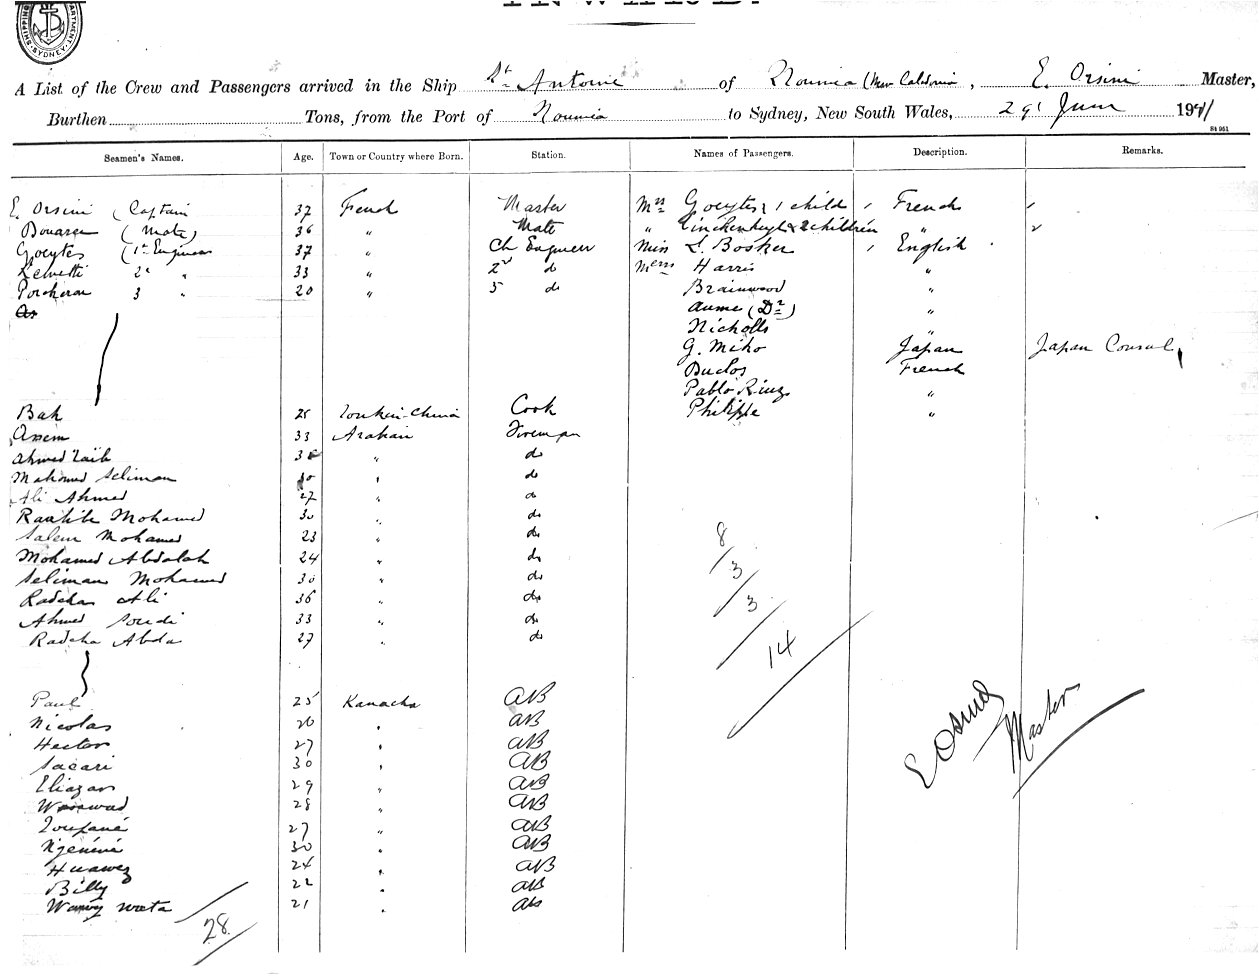 INWARD.
SHIPPING DEPARTMENT SYDNEY
A List of the Crew and Passengers arrived in the Ship St Antoine of Noumia (New Caledonia, E. Orsini Master,
Burthen Tons, from the Port of Noumia to Sydney, New South Wales, 29' June 191
St 951
Seamen's Names. Age. Town or Country where Born. Station. Names of Passengers. Description. Remarks.
E. Orsini (Captain 37 French Master Mrs Goeytes & 1 child French
(Mate) 36 " Mate " & 2 children "
Goeytes (1st Engineer 37 " Ch Engineer Miss L. Booker English
2d " 33 " 2nd do Messrs Harris "
Porcheron 3 " 20 " 3 do Brainwood "
Aume (Dr) "
Nicholls "
G. Miho Japan Japan Consul
Duclos French
Pablo "
Philippe "
Bah 25 Tonkin-China Cook
Assem 33 Arabian Fireman
Ahmed " do
Mahomed Seliman " do
Ali Ahmed 27 " do
Mohamed 30 " do
Salem Mohamed 23 " do
Mohamed Abdalah 24 " do
Seliman Mohamed 30 " do
Radcha Ali 36 " do
Ahmed 33 " do
Radcha Abda 27 " do
8
3
3
14
Paul 25 Kanacka AB
Nicolas 20 " AB
Hector 27 " AB
Sacari 30 " AB
Eliazar 29 " AB
28 " AB
27 " AB
30 " AB
24 " AB
Billy 22 " AB
21 " AB
28
E Orsini
Master